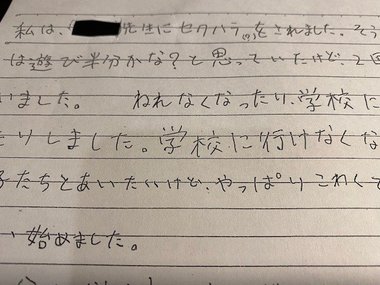 私は、先生にセクハラをされました。そう
は遊び半分かな?と思っていたけど、2回
いました。 ねれなくなったり、学校に
たりしました。学校に行けなくな
子たちとあいたいけど、やっぱりこわくて
い始めました。